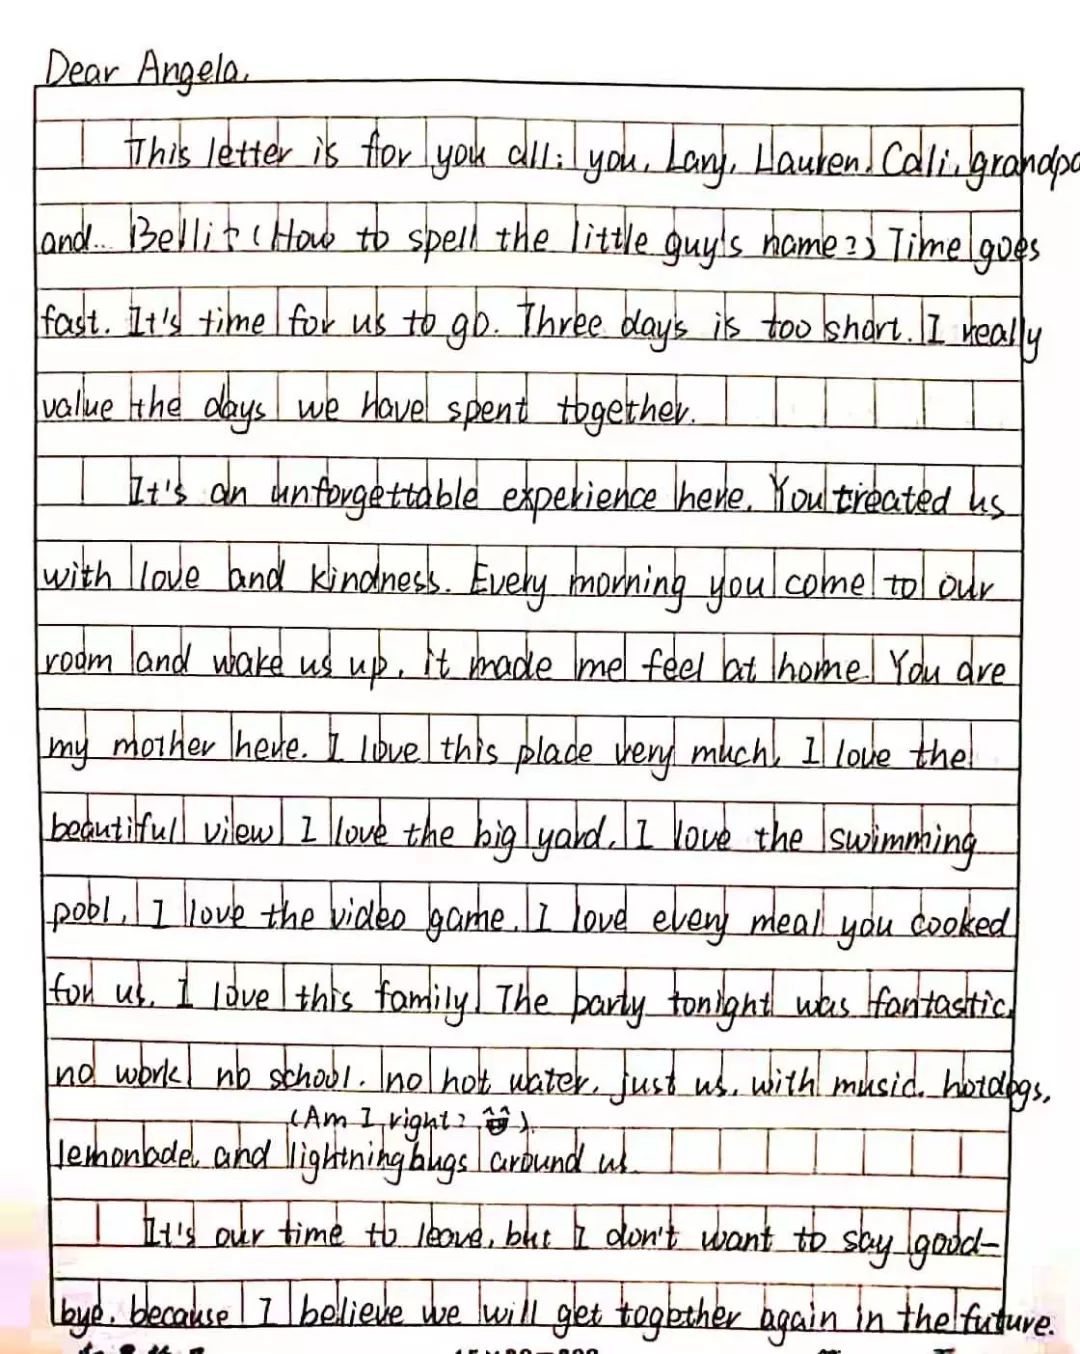 Dear Angela,
This letter is for you all: you, Lary, Lauren, Cali, grandpa
and... Bellit (How to spell the little guy's name?) Time goes
fast. It's time for us to go. Three days is too short. I really
value the days we have spent together.
It's an unforgettable experience here. You treated us
with love and kindness. Every morning you come to our
room and wake us up, it made me feel at home. You are
my mother here. I love this place very much, I love the
beautiful view, I love the big yard, I love the swimming
pool, I love the video game, I love every meal you cooked
for us, I love this family. The party tonight was fantastic,
no work, no school, no hot water, just us, with music, hotdogs,
(Am I right? ).
lemonbade, and lightningbugs around us.
It's our time to leave, but I don't want to say good-
bye, because I believe we will get together again in the future.